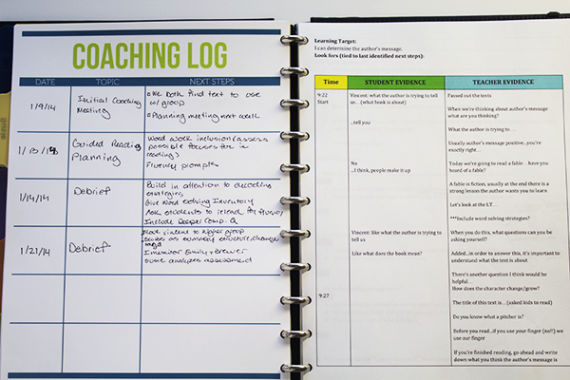 COACHING LOG
DATE TOPIC NEXT STEPS
1/9/14
Initial Coaching
Meeting
• We both find text to use
w/ group
• Planning meeting next week
Guided Reading
Planning
Word work inclusion (assess
possible focus
reading)
Fluency prompts
1/14/14
Debrief
Build in attention to decoding
strategies
Give Word Solving Inventory
Ask students to reread for fluency
Include Deeper Comp. Q
1/21/14
Debrief
Move Vincent to higher group
summary structure/change
assessment
Learning Target:
I can determine the author's message.
Look fors (tied to last identified next steps):
Time STUDENT EVIDENCE TEACHER EVIDENCE
9:22
Start
Vincent: what the author is trying to tell
us... (what book is about)
...tell you
No
..I think, people make it up
Vincent: like what the author is trying to
tell us
Like what does the book mean?
9:27
Passed out the texts
When we're thinking about author's message
what are you thinking?
What the author is trying to ...
Usually author's message positive, you're
exactly right...
Today we're going to read a fable ...have you
heard of a fable?
A fable is fiction, usually at the end there is a
strong lesson the author wants you to learn
Let's look at the LT...
***Include word solving strategies?
When you do this, what questions can you be
asking yourself?
Added..in order to answer this, it's important to
understand what the text is about
There's another question I think would be
helpful...
How does the character change/grow?
The title of this text is ...(asked kids to read)
Do you know what a pitcher is?
Before you read..if you use your finger (no!!) we
use our finger
If you're finished reading, go ahead and write
down what you think the author's message is